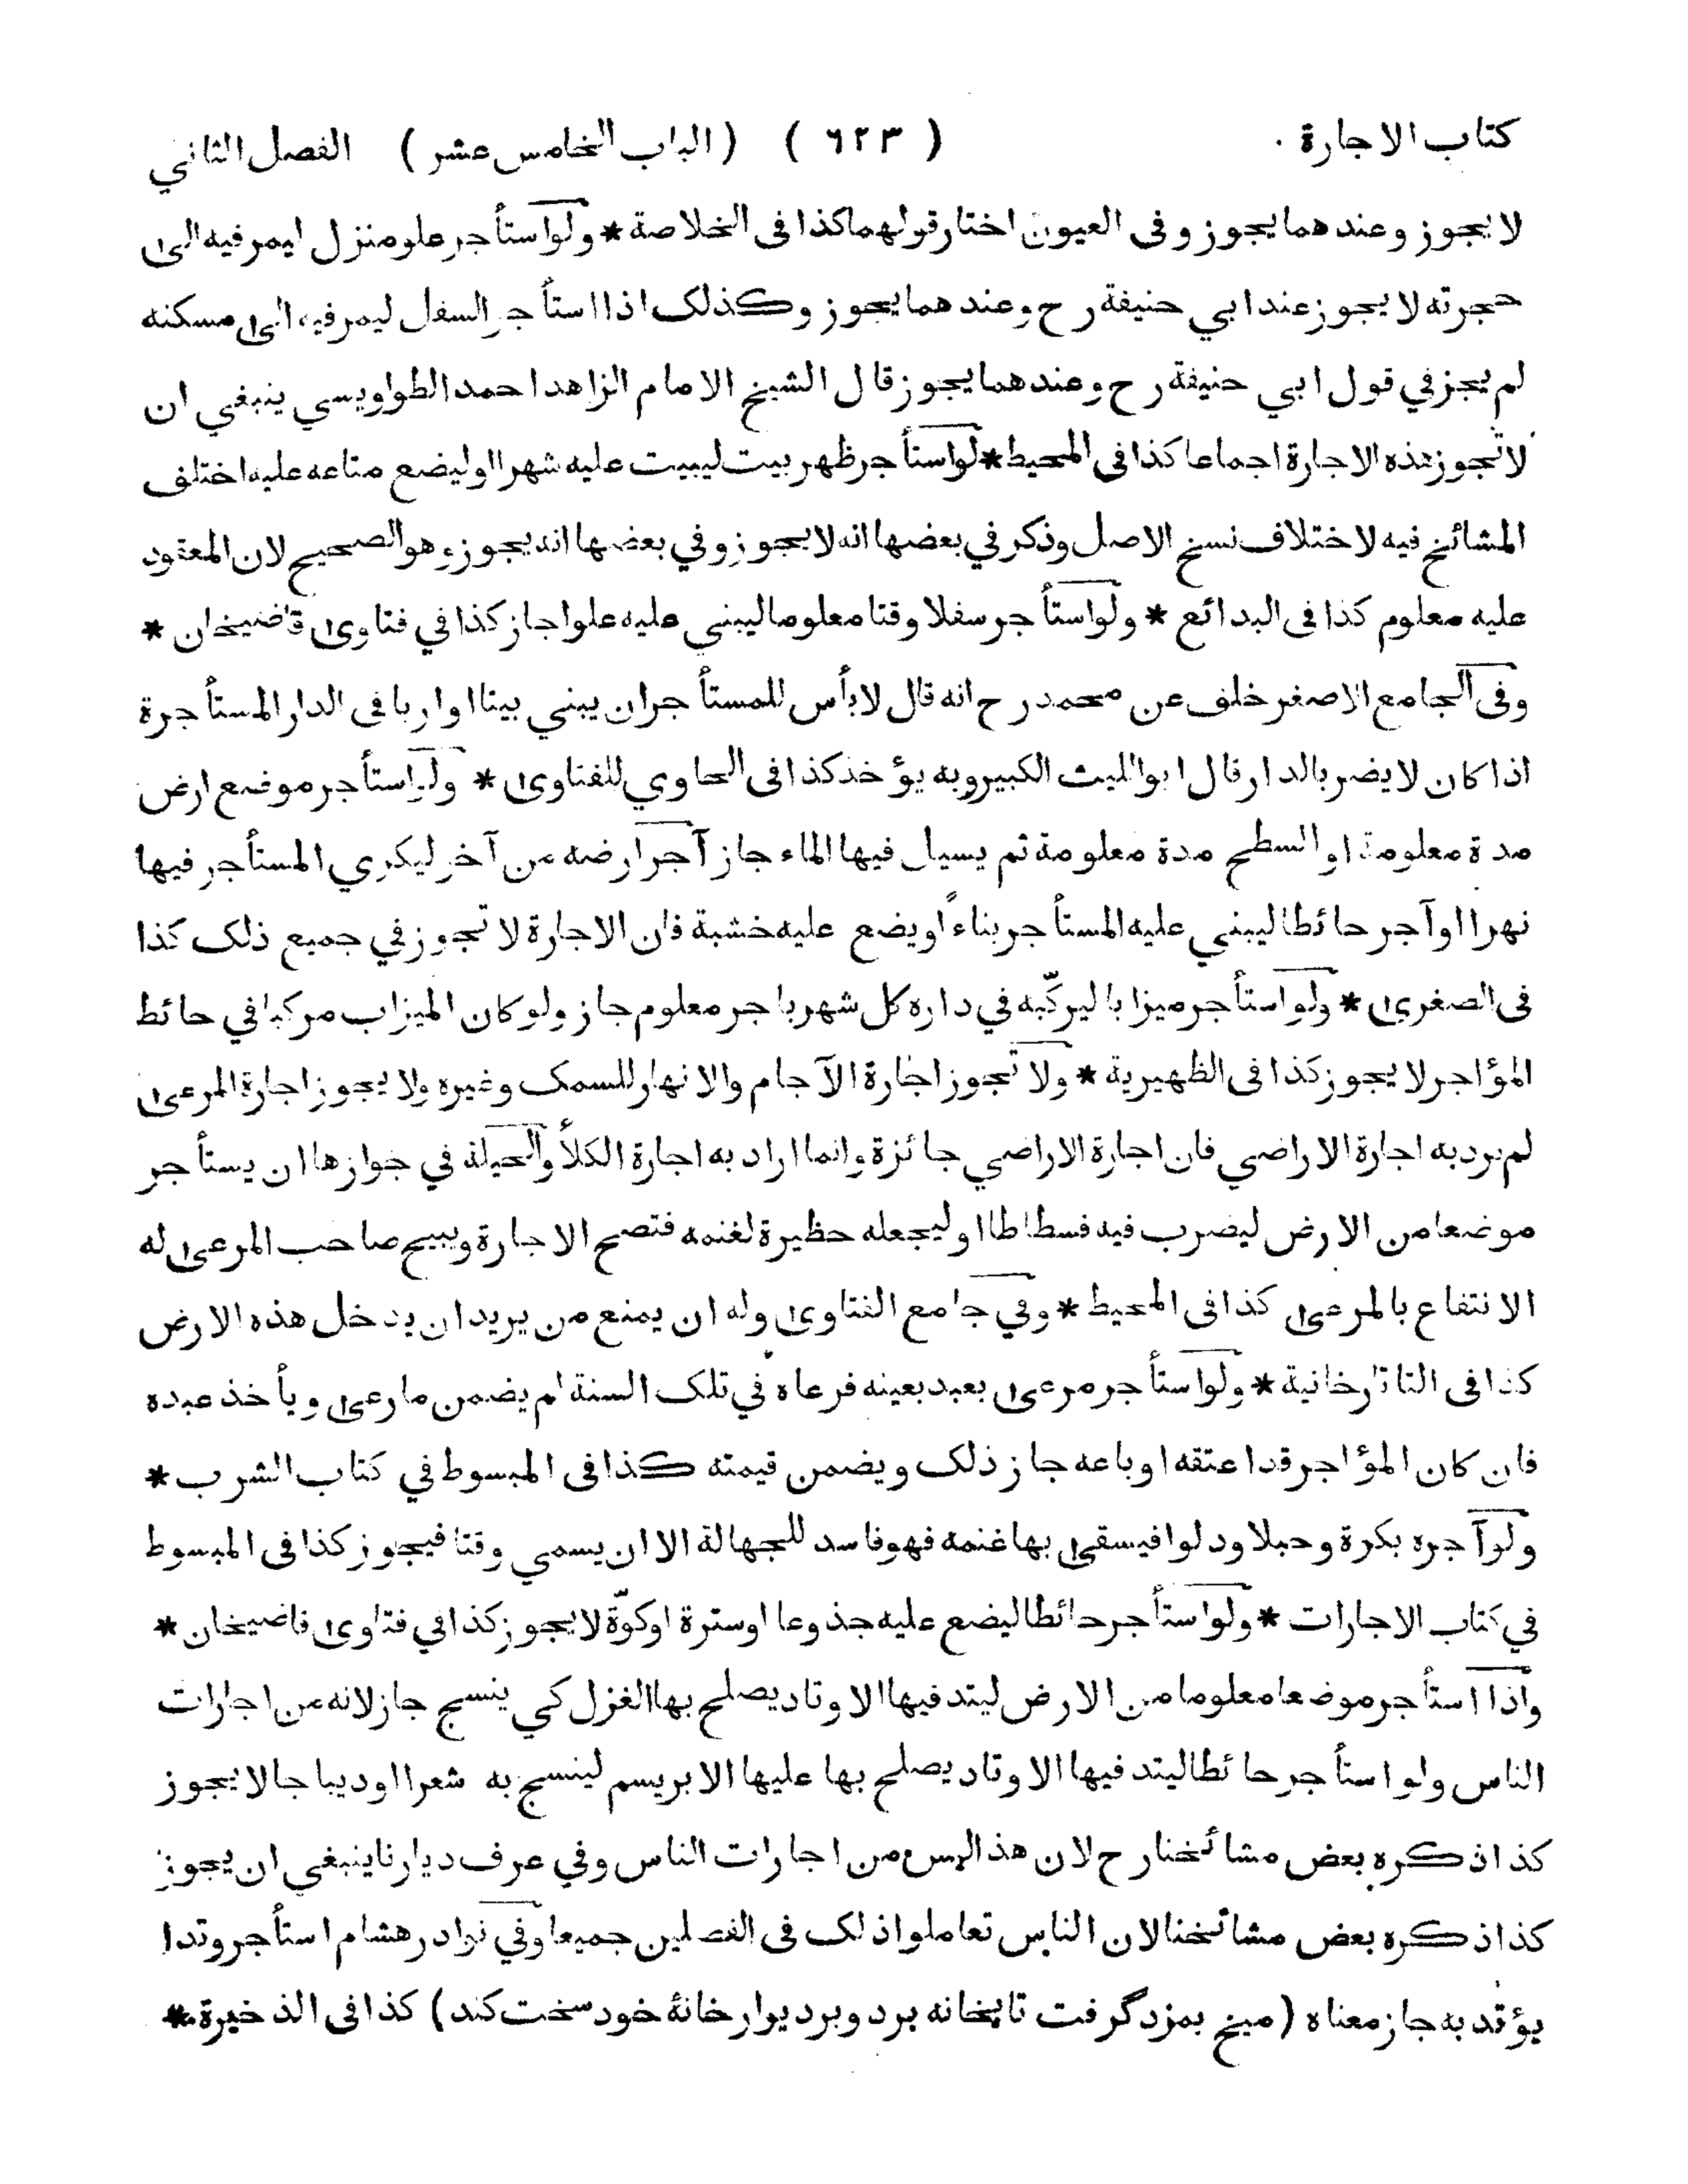 كتاب الاجارة ( ٦٢٣ ) ( الباب الخامس عشر ) الفصل الثاني
لا يجوز وعندهما يجوز وفى العيون اختار قولهما كذا فى الخلاصة * ولو استأجر علو منزل ليمر فيه الى
حجرته لا يجوز عند ابي حنيفة رح وعندهما يجوز وكذلك اذا استأجر السفل ليمر فيه الى مسكنه
لم يجز في قول ابي حنيفة رح وعندهما يجوز قال الشيخ الامام الزاهد احمد الطواويسي ينبغي ان
لا تجوز هذه الاجارة اجماعا كذا فى المحيط * لو استأجر ظهر بيت ليبيت عليه شهرا او ليضع متاعه عليه اختلف
المشائخ فيه لاختلاف نسخ الاصل وذكر في بعضها انه لا يجوز وفي بعضها انه يجوز وهو الصحيح لان المعقود
عليه معلوم كذا فى البدائع * ولو استأجر سفلا وقتا معلوما ليبني عليه علوا جاز كذا في فتاوى قاضيخان *
وفى الجامع الاصغر خلف عن محمد رح انه قال لا بأس للمستأجر ان يبني بيتا او اربا فى الدار المستأجرة
اذا كان لا يضر بالدار قال ابو الليث الكبير وبه يؤخذ كذا فى الحاوي للفتاوى * ولو استأجر موضع ارض
مدة معلومة او السطح مدة معلومة ثم يسيل فيها الماء جاز آجر ارضه من آخر ليكري المستأجر فيها
نهرا او آجر حائطا ليبني عليه المستأجر بناءً او يضع عليه خشبة فان الاجارة لا تجوز في جميع ذلك كذا
فى الصغرى * ولو استأجر ميزابا ليركّبه في داره كل شهر باجر معلوم جاز ولو كان الميزاب مركبا في حائط
المؤاجر لا يجوز كذا فى الظهيرية * ولا تجوز اجارة الآجام والانهار للسمك وغيره ولا يجوز اجارة المرعى
لم يرد به اجارة الاراضي فان اجارة الاراضي جائزة وانما اراد به اجارة الكلأ والحيلة في جوازها ان يستأجر
موضعا من الارض ليضرب فيه فسطاطا او ليجعله حظيرة لغنمه فتصح الاجارة ويبيح صاحب المرعى له
الانتفاع بالمرعى كذا فى المحيط * وفي جامع الفتاوى وله ان يمنع من يريد ان يدخل هذه الارض
كذا فى التاتارخانية * ولو استأجر مرعى بعبد بعينه فرعاه في تلك السنة لم يضمن ما رعى ويأخذ عبده
فان كان المؤاجر قد اعتقه او باعه جاز ذلك ويضمن قيمته كذا فى المبسوط في كتاب الشرب *
ولو آجره بكرة وحبلا ودلوا فيسقى بها غنمه فهو فاسد للجهالة الا ان يسمي وقتا فيجوز كذا فى المبسوط
في كتاب الاجارات * ولو استأجر حائطا ليضع عليه جذوعا او سترة او كوّة لا يجوز كذا في فتاوى قاضيخان *
واذا استأجر موضعا معلوما من الارض ليتد فيها الاوتاد يصلح بها الغزل كي ينسج جاز لانه من اجارات
الناس ولو استأجر حائطا ليتد فيها الاوتاد يصلح بها عليها الابريسم لينسج به شعرا او ديباجا لا يجوز
كذا ذكره بعض مشائخنا رح لان هذا ليس من اجارات الناس وفي عرف ديارنا ينبغي ان يجوز
كذا ذكره بعض مشائخنا لان الناس تعاملوا ذلك فى الفصلين جميعا وفي نوادر هشام استأجر وتدا
يؤتد به جاز معناه ( ميخ بمزد گرفت تابخانه برد وبر ديوار خانۀ خود سخت كند ) كذا فى الذخيرة *